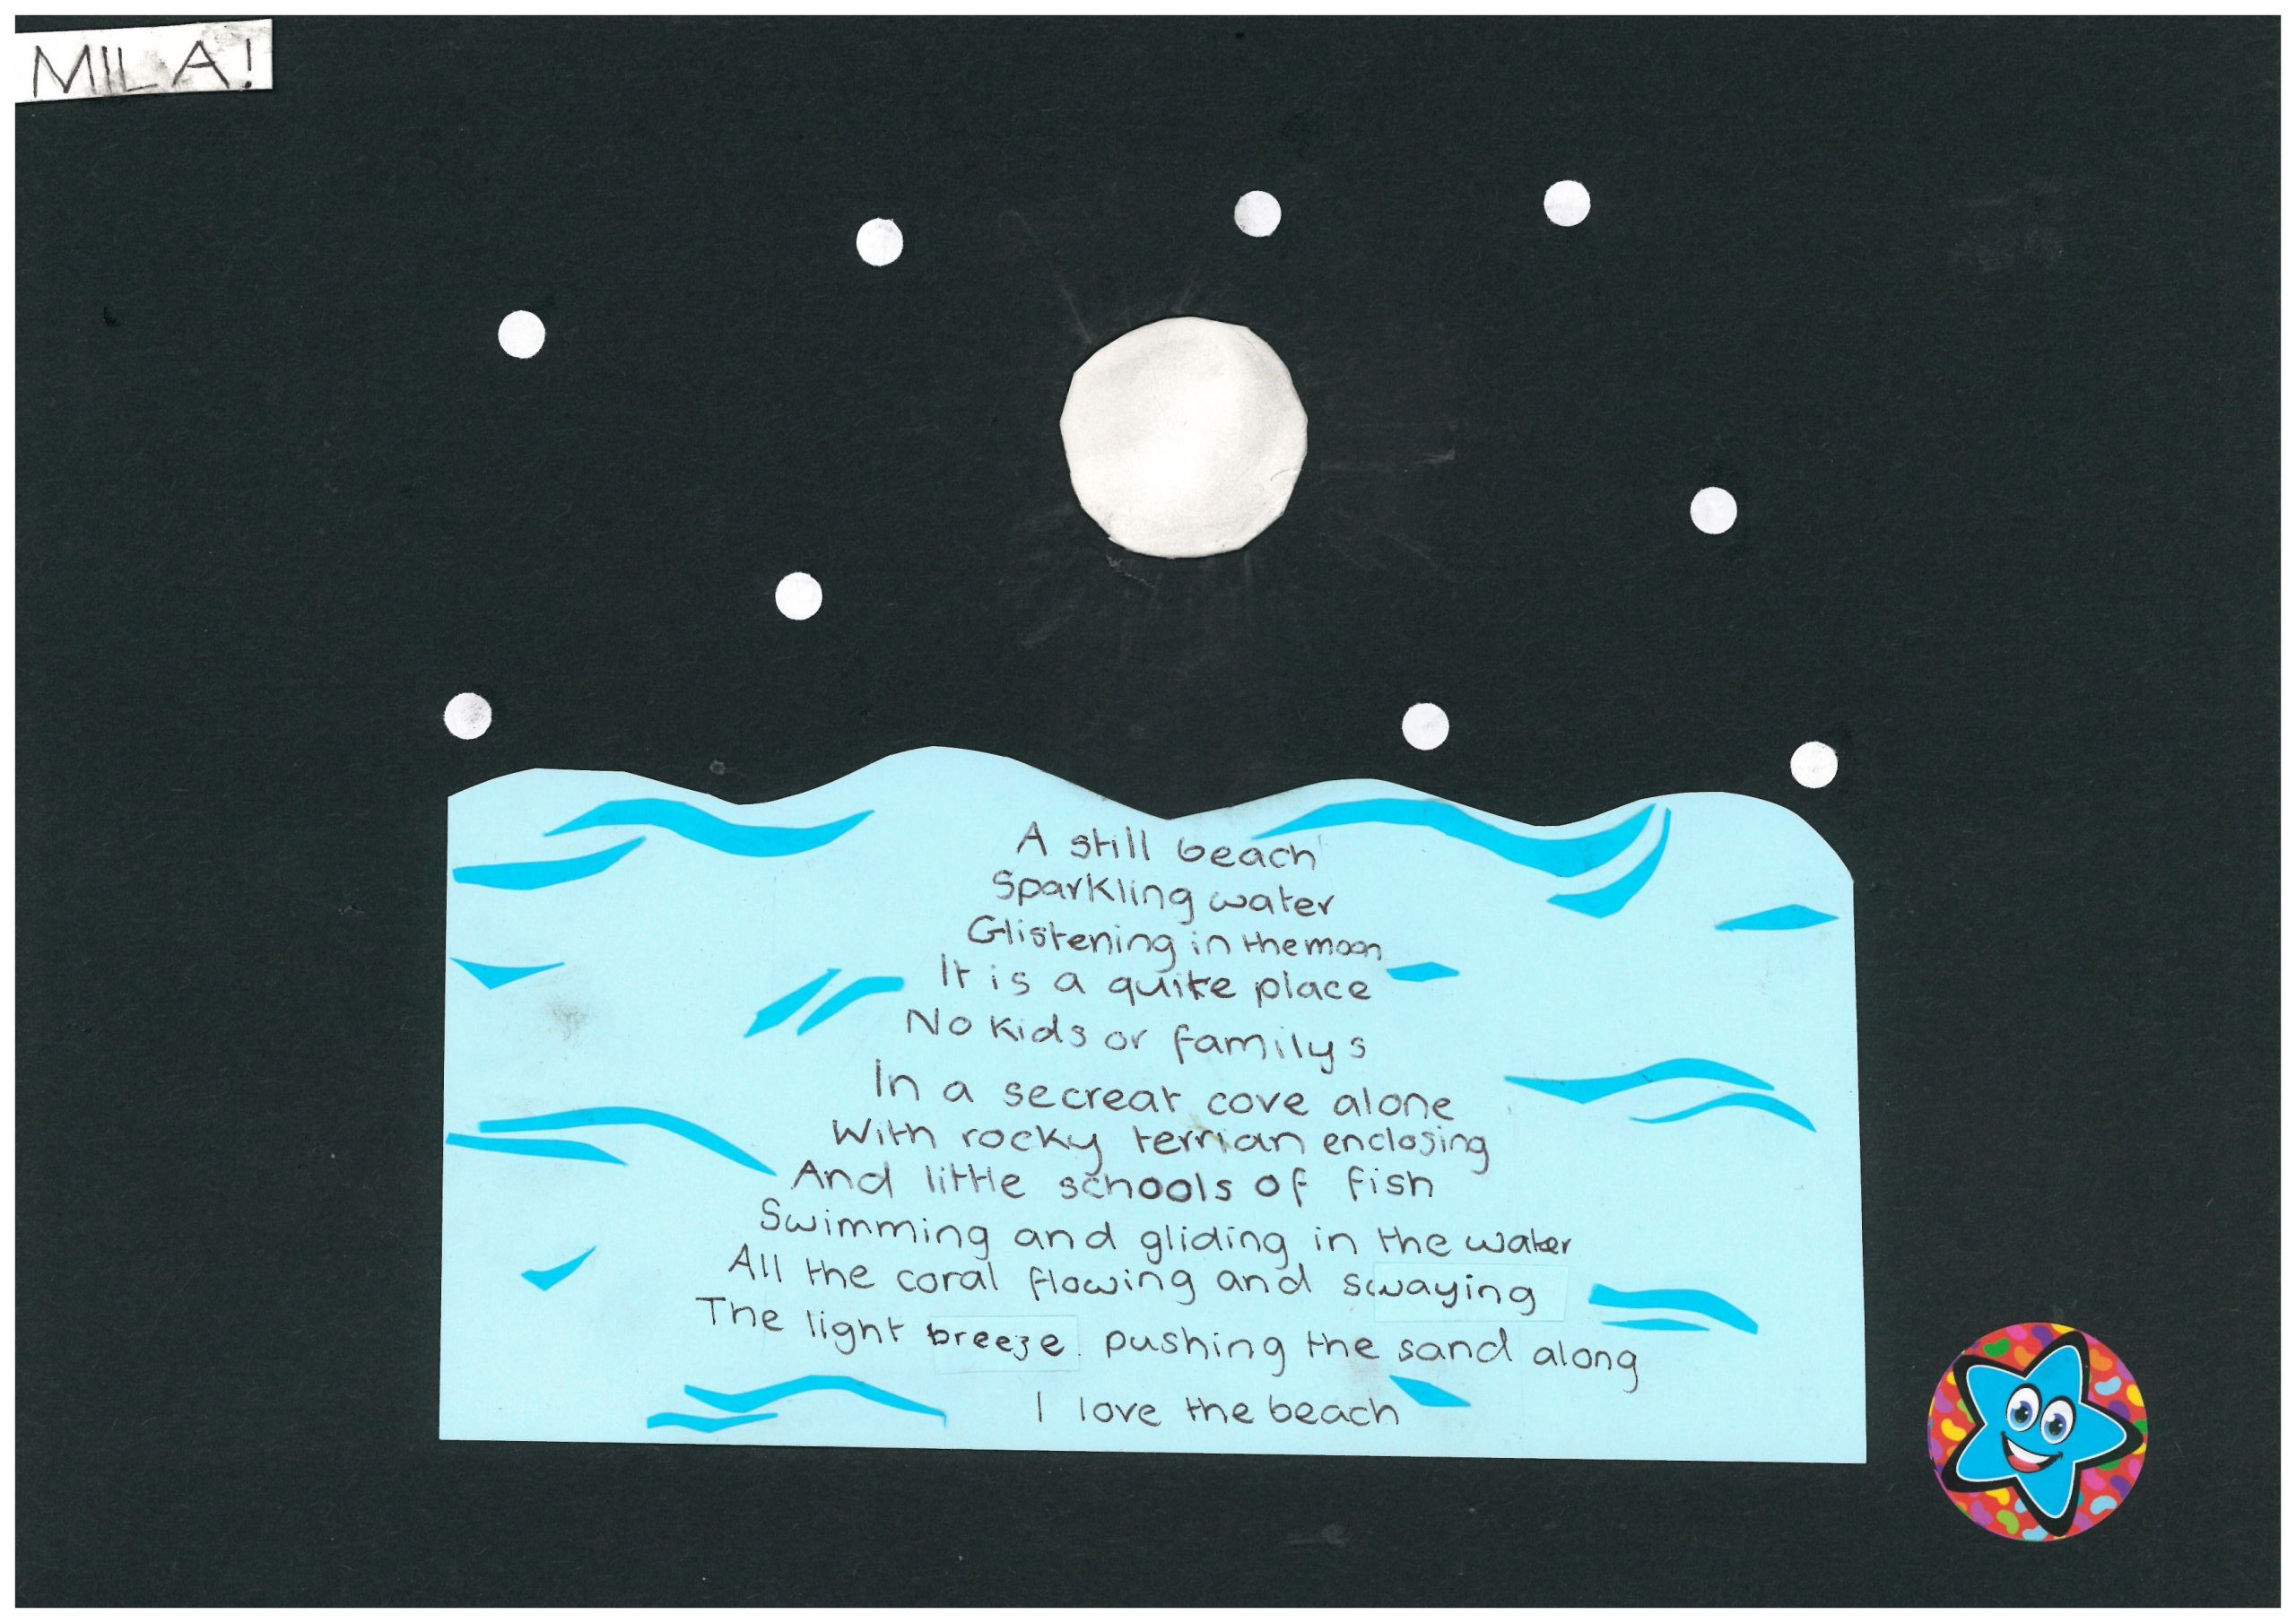 MILA!
A still beach
Sparkling water
Glistening in the moon
It is a quite place
No kids or familys
In a secreat cove alone
With rocky terrian enclosing
And little schools of fish
Swimming and gliding in the water
All the coral flowing and swaying
The light breeze pushing the sand along
I love the beach